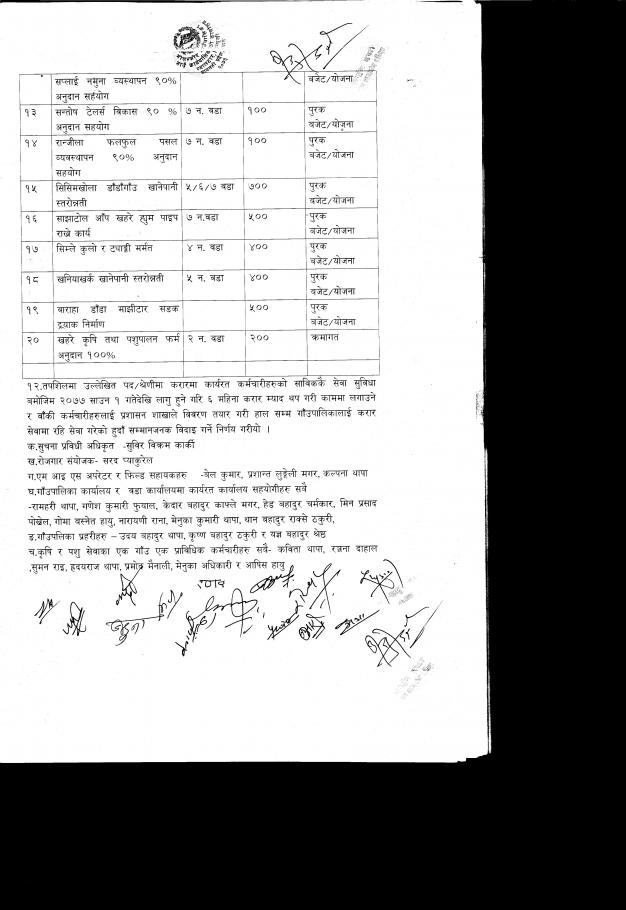 सप्लाई नमुना व्यवस्थापन ९०% बजेट/योजना
अनुदान सहयोग
१३ सन्तोष टेलर्स विकास ९० % ७ न. वडा १०० पुरक
अनुदान सहयोग बजेट/योजना
१४ रान्जीला फलफुल पसल ७ न. वडा १०० पुरक
व्यवस्थापन ९०% अनुदान बजेट/योजना
सहयोग
१५ सिसिमखोला डाँडाँगाँउ खानेपानी ५/६/७ वडा ७०० पुरक
स्तरोन्नती बजेट/योजना
१६ साझाटोल आँप खहरे ह्युम पाइप ७ न.वडा ५०० पुरक
राख्ने कार्य बजेट/योजना
१७ सिम्ले कुलो र ट्याङ्की मर्मत ४ न. वडा ४०० पुरक
बजेट/योजना
१८ खनियाखर्क खानेपानी स्तरोन्नती ५ न. वडा ४०० पुरक
बजेट/योजना
१९ बाराहा डाँडा माझीटार सडक ५०० पुरक
ट्र्याक निर्माण बजेट/योजना
२० खहरे कृषि तथा पशुपालन फर्म २ न. वडा २०० क्रमागत
अनुदान १००%
१२.तपशिलमा उल्लेखित पद/श्रेणीमा करारमा कार्यरत कर्मचारीहरुको साविककै सेवा सुविधा
बमोजिम २०७७ साउन १ गतेदेखि लागु हुने गरि ६ महिना करार म्याद थप गरी काममा लगाउने
र वाँकी कर्मचारीहरुलाई प्रशासन शाखाले विवरण तयार गरी हाल सम्म गाँउपालिकालाई करार
सेवामा रहि सेवा गरेको हुदाँ सम्मानजनक विदाइ गर्ने निर्णय गरीयो ।
क.सुचना प्रविधी अधिकृत -सुविर विक्रम कार्की
ख.रोजगार संयोजक- सरद प्याकुरेल
ग.एम आइ एस अपरेटर र फिल्ड सहायकहरु -बेल कुमार, प्रशान्त लुङ्गेली मगर, कल्पना थापा
घ.गाँउपालिका कार्यालय र वडा कार्यालयमा कार्यरत कार्यालय सहयोगीहरु सवै
-रामहरी थापा, गणेश कुमारी फुयाल, केदार बहादुर काफ्ले मगर, हेड बहादुर चर्मकार, मिन प्रसाद
पोख्रेल, गोमा वस्नेत हायु, नारायणी राना, मेनुका कुमारी थापा, थान बहादुर राक्से ठकुरी,
ड.गाँउपलिका प्रहरीहरु – उदय बहादुर थापा, कृष्ण बहादुर ठकुरी र यज्ञ बहादुर श्रेष्ठ
च.कृषि र पशु सेवाका एक गाँउ एक प्राविधिक कर्मचारीहरु सवै- कविता थापा, रञ्जना दाहाल
,सुमन राइ, हृदयराज थापा, प्रमोद मैनाली, मेनुका अधिकारी र आपिस हायु